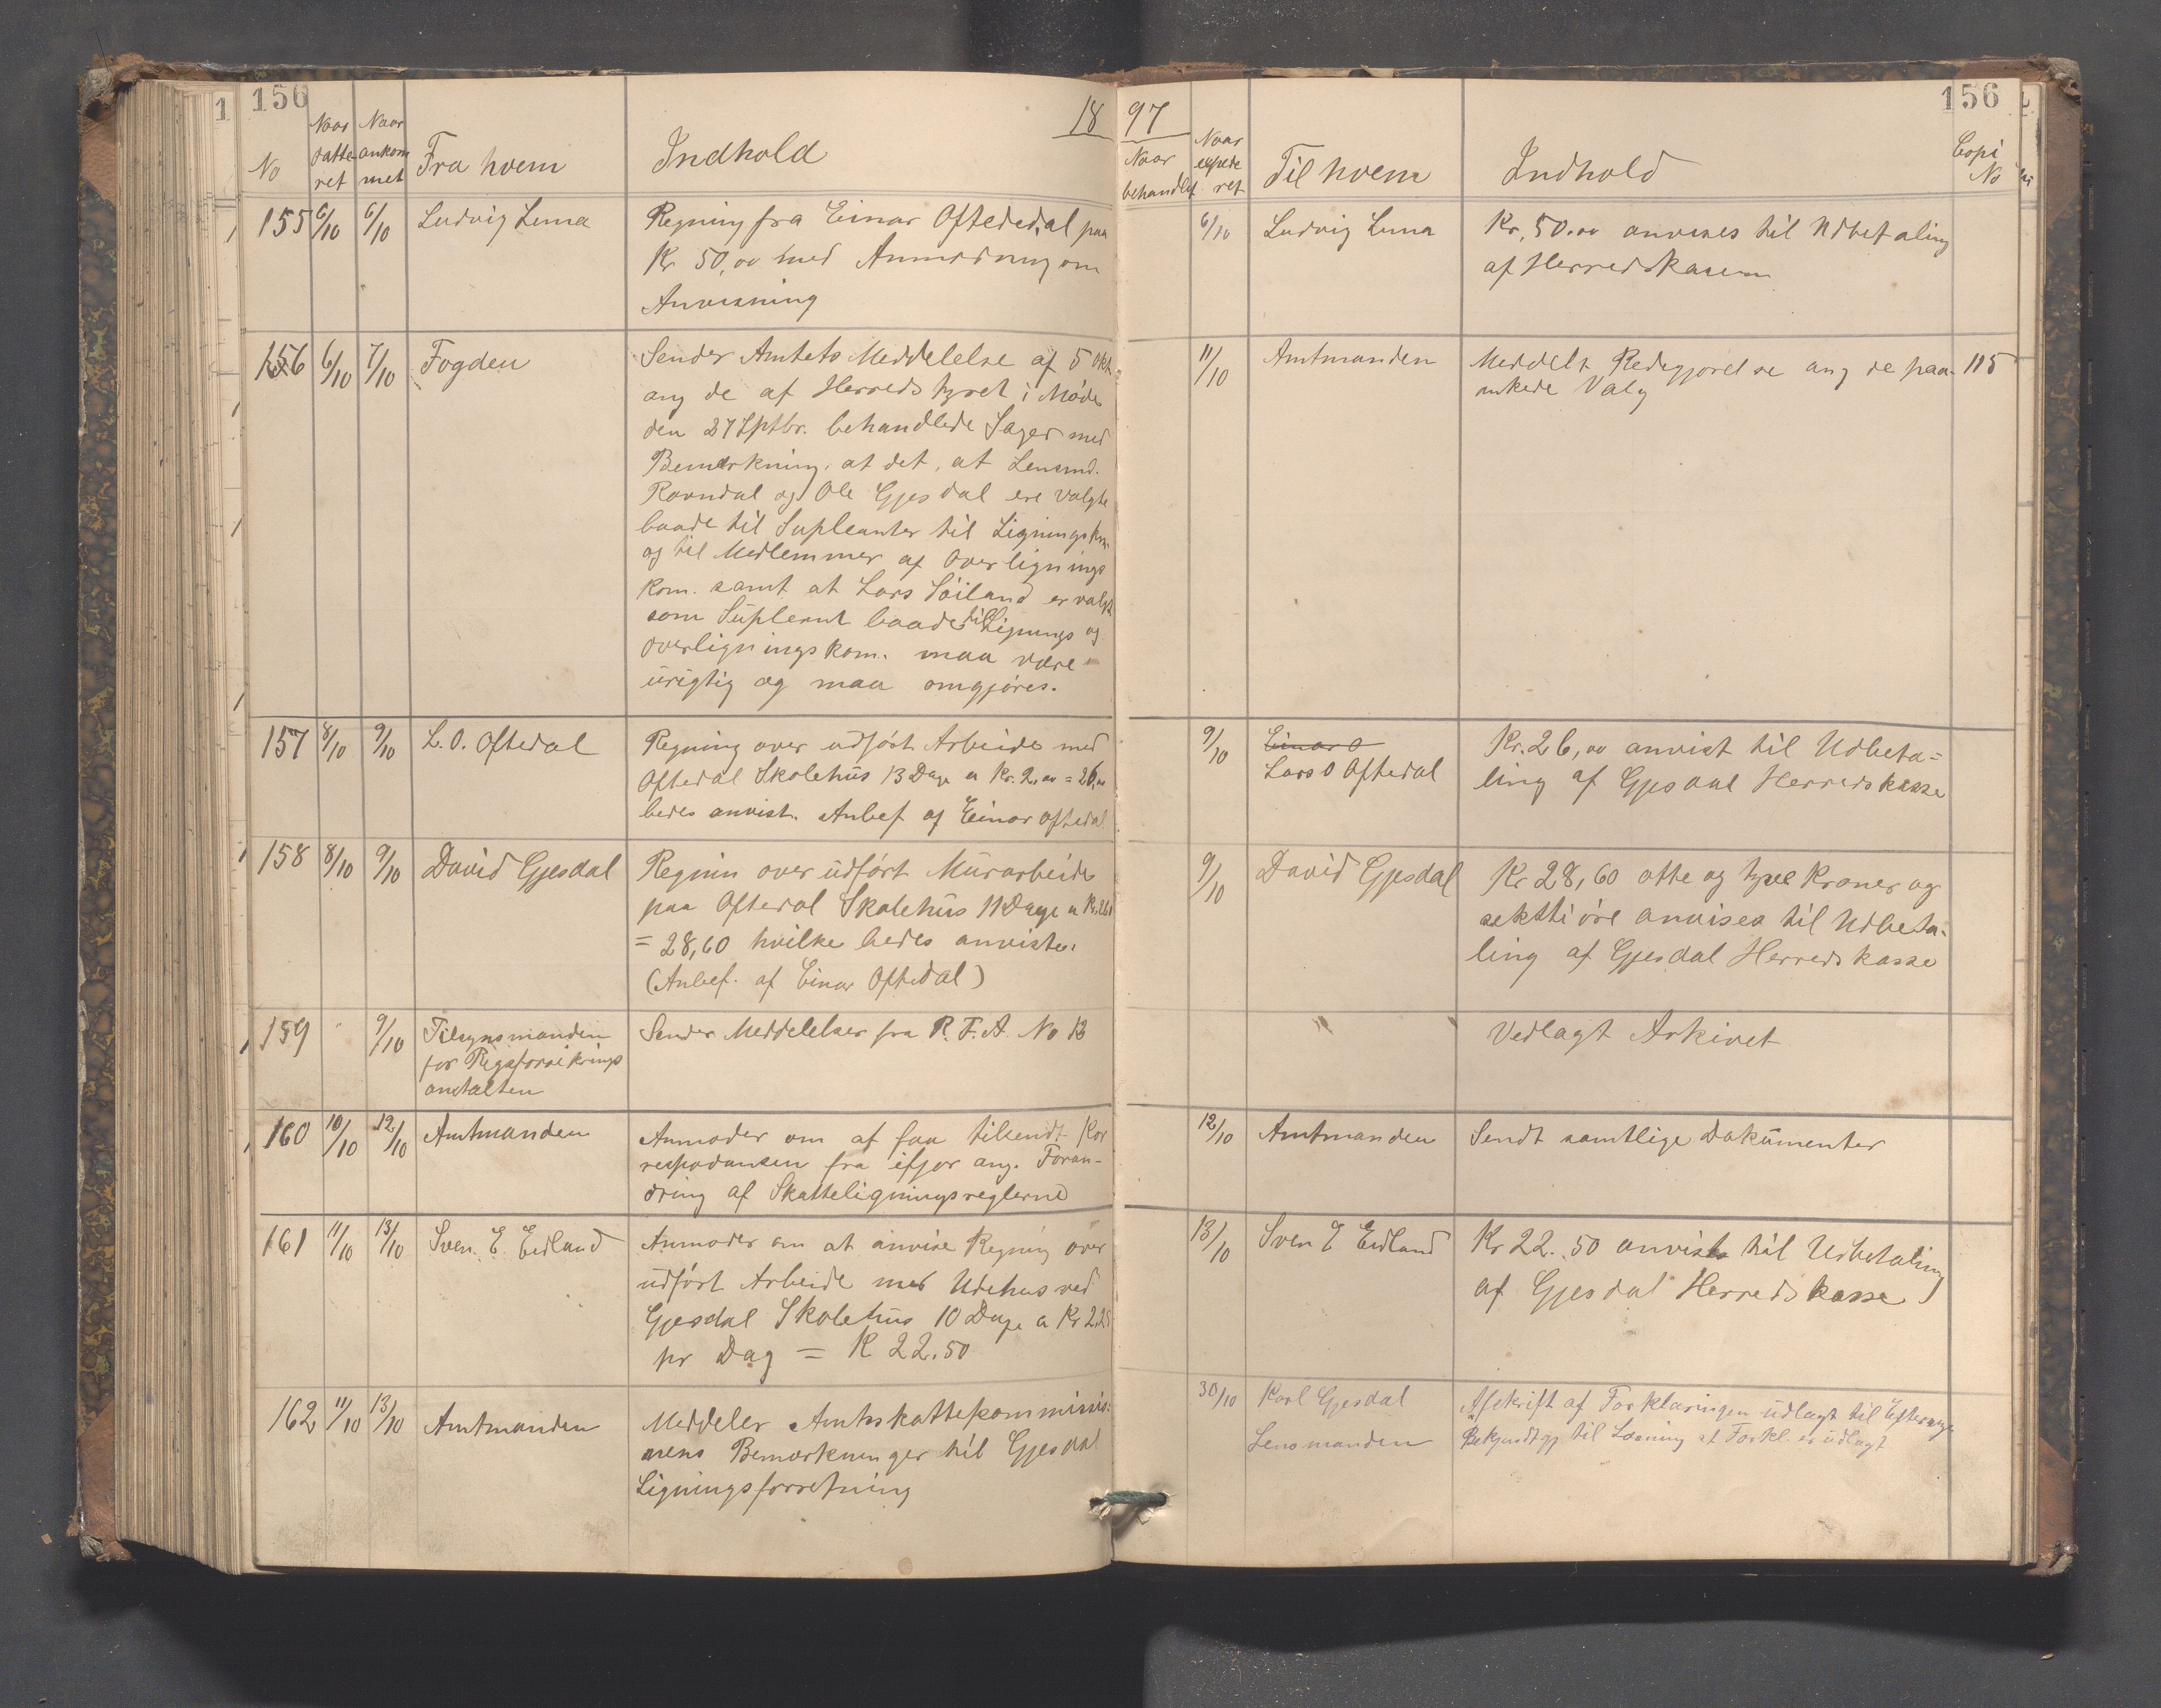 156
18
No
Naar datteret
Naar ankommet
Fra hvem
Indhold
155 6/10 6/10 Ludvig Lima
Regning fra Einar Oftededal paa
Kr 50,00 med Anmodning om
Anvisning
156 6/10 7/10 Fogden
Sender Amtets Meddelelse af 5 Okt
ang de af Herredstyret i Møde
den 27 Sptbr. behandlede Sager med
Bemærkning, at det, at Lensmd.
Ravndal og Ole Gjesdal ere valgte
baade til Supleanter til Ligningskom.
og til Medlemmer af Overlignings
kom. samt at Lars Söiland er valgt
som Supleant baade til Lignings og
overligningskom. maa være
urigtig og maa omgjøres.
157 8/10 9/10 L. O. Oftedal
Regning over udført Arbeide med
Oftedal Skolehus 13 Dage a Kr. 2,00 = 26,00
bedes anvist. Anbef af Einar Oftedal
158 8/10 9/10 David Gjesdal
Regnin over udført Murarbeide
paa Oftedal Skolehus 11 Dage a Kr. 2,60
= 28,60 hvilke bedes anviste.
(Anbef. af Einar Oftedal)
159 " 9/10 Tilsynsmanden
for Rigsforsikrings
anstalten
Sender Meddelelser fra R. F. A. No 13
160 10/10 12/10 Amtmanden
Anmoder om at faa tilsendt Kor
respodansen fra ifjor ang. Foran-
dring af Skatteligningsreglerne
161 11/10 13/10 Sven. E. Eidland
Anmoder om at anvise Regning over
udført Arbeide med Udehus ved
Gjesdal Skolehus 10 Dage a Kr 2,25
pr Dag = K 22.50
162 11/10 13/10 Amtmanden
Meddeler Amtsskattekommissio-
nens Bemærkninger til Gjesdal
Ligningsforretning
97
156
Naar behandlet
Naar expederet
Til hvem
Indhold
Copi No
6/10 Ludvig Lima
Kr. 50.00 anvises til Udbetaling
af Herredskassen
11/10 Amtmanden
Meddelt Redegjørelse ang de paa- 115
ankede Valg
9/10 Einar O
Lars O Oftedal
Kr. 26,00 anvist til Udbeta=
ling af Gjesdal Herredskasse
9/10 David Gjesdal
Kr 28,60 otte og tyve Kroner og
seksti öre anvises til Udbeta-
ling af Gjesdal Herredskasse
Vedlagt Arkivet
12/10 Amtmanden
Sendt samtlige Dokumenter
13/10 Sven E Eidland
Kr 22.50 anvist til Udbetaling
af Gjesdal Herredskasse
30/10 Karl Gjesdal
Afskrift af Forklaringen udlagt til Eftersyn
Lensmanden
Bekjendtgj til Læsning at Forkl. er udlagt